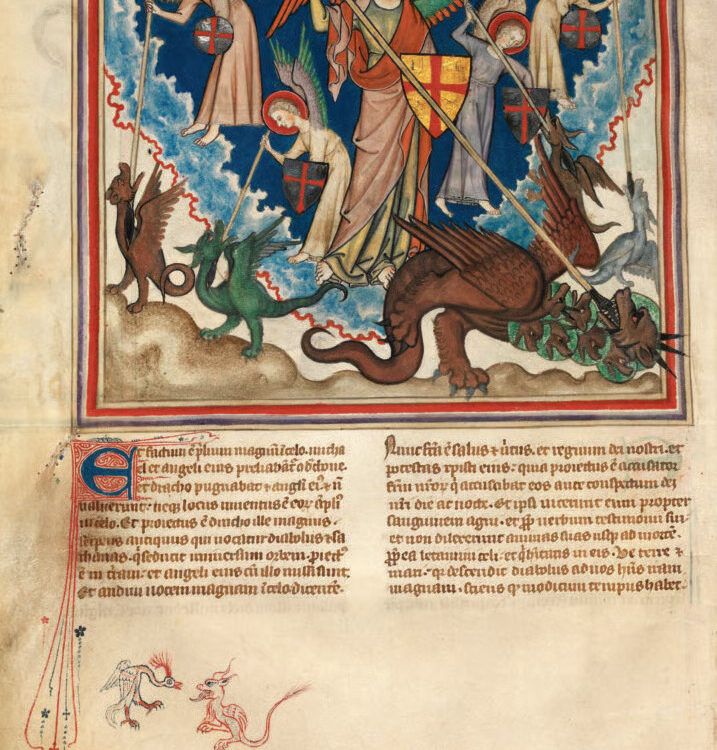 Et factum ē p̄lium magnū ī celo. micha
el et angeli eius preliabāt̄ c̄ dracone.
et dracho pugnabat ⁊ angli ei⁹ ⁊ n̄
ualuerunt: neqꝫ locus inuentus ē eoꝝ āpli⁹
in celo. Et proiectus ē dracho ille magnus.
serpens antiquus qui uocatur diabolus ⁊ sa
thanas. q̄ seducit uniuersum orbem. ꝓiect⁹
ē in t̄ram. et angeli eius cū illo missi sunt.
Et audiui uocem magnam ī celo dicentē.
Nunc fc̄a ē salus ⁊ uirtus. et regnum dei nostri. et
potestas xpisti eius: quia proiectus ē accusator
frm̄ nr̄oꝝ q̄ accusabat eos ante conspectum dei
nr̄i die ac nocte. Et ipsi uicerunt eum propter
sanguinem agni. et ꝓp̄ uerbum testimonii sui.
et non dilexerunt animas suas usqꝫ ad mortē.
ꝓp̄ea letamini celi. et q̄ h̄itatis in eis. Ve terre ⁊
mari. q̄ descendit diabolus ad uos hn̄s iram
magnam. sciens q̄ modicum tempus habet.